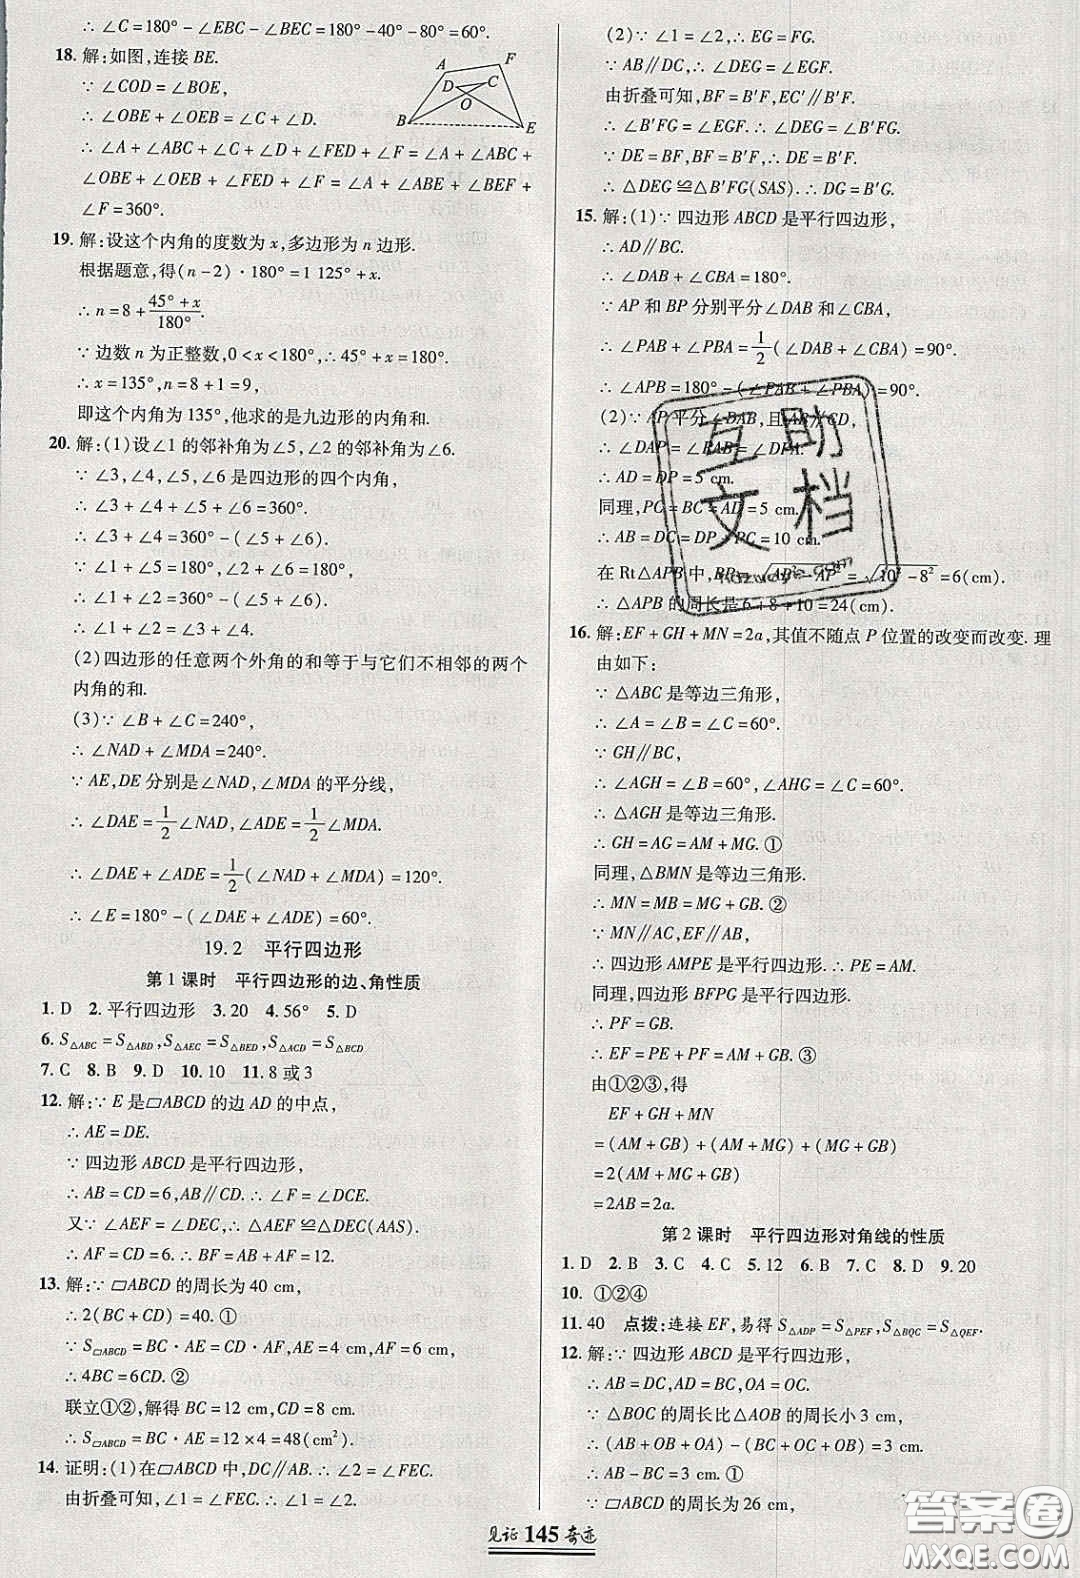 ∴ ∠C=180°-∠EBC-∠BEC=180°-40°-80°=60°.
18. 解:如图,连接 BE.
∵ ∠COD=∠BOE,
∴ ∠OBE+∠OEB=∠C+∠D.
∴ ∠A+∠ABC+∠C+∠D+∠FED+∠F=∠A+∠ABC+
∠OBE+∠OEB+∠FED+∠F=∠A+∠ABE+∠BEF+
∠F=360°.
A F D C O B E
19. 解:设这个内角的度数为 x,多边形为 n 边形.
根据题意,得(n-2)·180°=1 125°+x.
∴ n=8+(45°+x)/180°.
∵ 边数 n 为正整数,0<x<180°,∴ 45°+x=180°.
∴ x=135°,n=8+1=9,
即这个内角为 135°,他求的是九边形的内角和.
20. 解:(1)设∠1 的邻补角为∠5,∠2 的邻补角为∠6.
∵ ∠3,∠4,∠5,∠6 是四边形的四个内角,
∴ ∠3+∠4+∠5+∠6=360°.
∴ ∠3+∠4=360°-(∠5+∠6).
∵ ∠1+∠5=180°,∠2+∠6=180°,
∴ ∠1+∠2=360°-(∠5+∠6).
∴ ∠1+∠2=∠3+∠4.
(2)四边形的任意两个外角的和等于与它们不相邻的两个
内角的和.
(3)∵ ∠B+∠C=240°,
∴ ∠NAD+∠MDA=240°.
∵ AE,DE 分别是∠NAD,∠MDA 的平分线,
∴ ∠DAE=1/2∠NAD,∠ADE=1/2∠MDA.
∴ ∠DAE+∠ADE=1/2(∠NAD+∠MDA)=120°.
∴ ∠E=180°-(∠DAE+∠ADE)=60°.
19.2 平行四边形
第 1 课时 平行四边形的边、角性质
1. D 2. 平行四边形 3. 20 4. 56° 5. D
6. S△ABC=S△ABD,S△AEC=S△BED,S△ACD=S△BCD
7. C 8. B 9. D 10. 10 11. 8 或 3
12. 解:∵ E 是▱ABCD 的边 AD 的中点,
∴ AE=DE.
∵ 四边形 ABCD 是平行四边形,
∴ AB=CD=6,AB∥CD. ∴ ∠F=∠DCE.
又∵ ∠AEF=∠DEC,∴ △AEF≌△DEC(AAS).
∴ AF=CD=6. ∴ BF=AB+AF=12.
13. 解:∵ ▱ABCD 的周长为 40 cm,
∴ 2(BC+CD)=40. ①
∵ S▱ABCD=BC·AE=CD·AF,AE=4 cm,AF=6 cm,
∴ 4BC=6CD. ②
联立①②,解得 BC=12 cm,CD=8 cm.
∴ S▱ABCD=BC·AE=12×4=48(cm²).
14. 证明:(1)在▱ABCD 中,DC∥AB. ∴ ∠2=∠FEC.
由折叠可知,∠1=∠FEC. ∴ ∠1=∠2.
(2)∵ ∠1=∠2,∴ EG=FG.
∵ AB∥DC,∴ ∠DEG=∠EGF.
由折叠可知,BF=B'F,EC'∥B'F.
∴ ∠B'FG=∠EGF. ∴ ∠DEG=∠B'FG.
∵ DE=BF,BF=B'F,∴ DE=B'F.
∴ △DEG≌△B'FG(SAS). ∴ DG=B'G.
15. 解:(1)∵ 四边形 ABCD 是平行四边形,
∴ AD∥BC.
∴ ∠DAB+∠CBA=180°.
∵ AP 和 BP 分别平分∠DAB 和∠CBA,
∴ ∠PAB+∠PBA=1/2(∠DAB+∠CBA)=90°.
∴ ∠APB=180°-(∠PAB+∠PBA)=90°.
(2)∵ AP 平分∠DAB,且 AB∥CD,
∴ ∠DAP=∠PAB=∠DPA.
∴ AD=DP=5 cm.
同理,PC=BC=AD=5 cm.
∴ AB=DC=DP+PC=10 cm.
在 Rt△APB 中,BP=√(AB²-AP²)=√(10²-8²)=6(cm).
∴ △APB 的周长是 6+8+10=24(cm).
16. 解:EF+GH+MN=2a,其值不随点 P 位置的改变而改变. 理
由如下:
∵ △ABC 是等边三角形,
∴ ∠A=∠B=∠C=60°.
∵ GH∥BC,
∴ ∠AGH=∠B=60°,∠AHG=∠C=60°.
∴ △AGH 是等边三角形.
∴ GH=AG=AM+MG. ①
同理,△BMN 是等边三角形.
∴ MN=MB=MG+GB. ②
∵ MN∥AC,EF∥AB,
∴ 四边形 AMPE 是平行四边形. ∴ PE=AM.
同理,四边形 BFPG 是平行四边形.
∴ PF=GB.
∴ EF=PE+PF=AM+GB. ③
由①②③,得
EF+GH+MN
=(AM+GB)+(AM+MG)+(MG+GB)
=2(AM+MG+GB)
=2AB=2a.
第 2 课时 平行四边形对角线的性质
1. D 2. B 3. C 4. C 5. 12 6. B 7. C 8. D 9. 20
10. ①②④
11. 40 点拨:连接 EF,易得 S△ADP=S△PEF,S△BQC=S△QEF.
12. 解:∵ 四边形 ABCD 是平行四边形,
∴ AB=DC,AD=BC,OA=OC.
∵ △BOC 的周长比△AOB 的周长小 3 cm,
∴ (AB+OB+OA)-(BC+OC+OB)=3 cm.
∴ AB-BC=3 cm. ①
∵ ▱ABCD 的周长为 26 cm,
见证 145 奇迹
互助
文档
答案圈
MXQE.COM